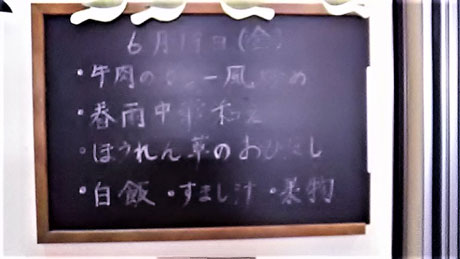 6月19日(金)
・牛肉の 風炒め
・春雨中華和え
・ほうれん草のおひたし
・白飯 ・すまし汁 ・果物